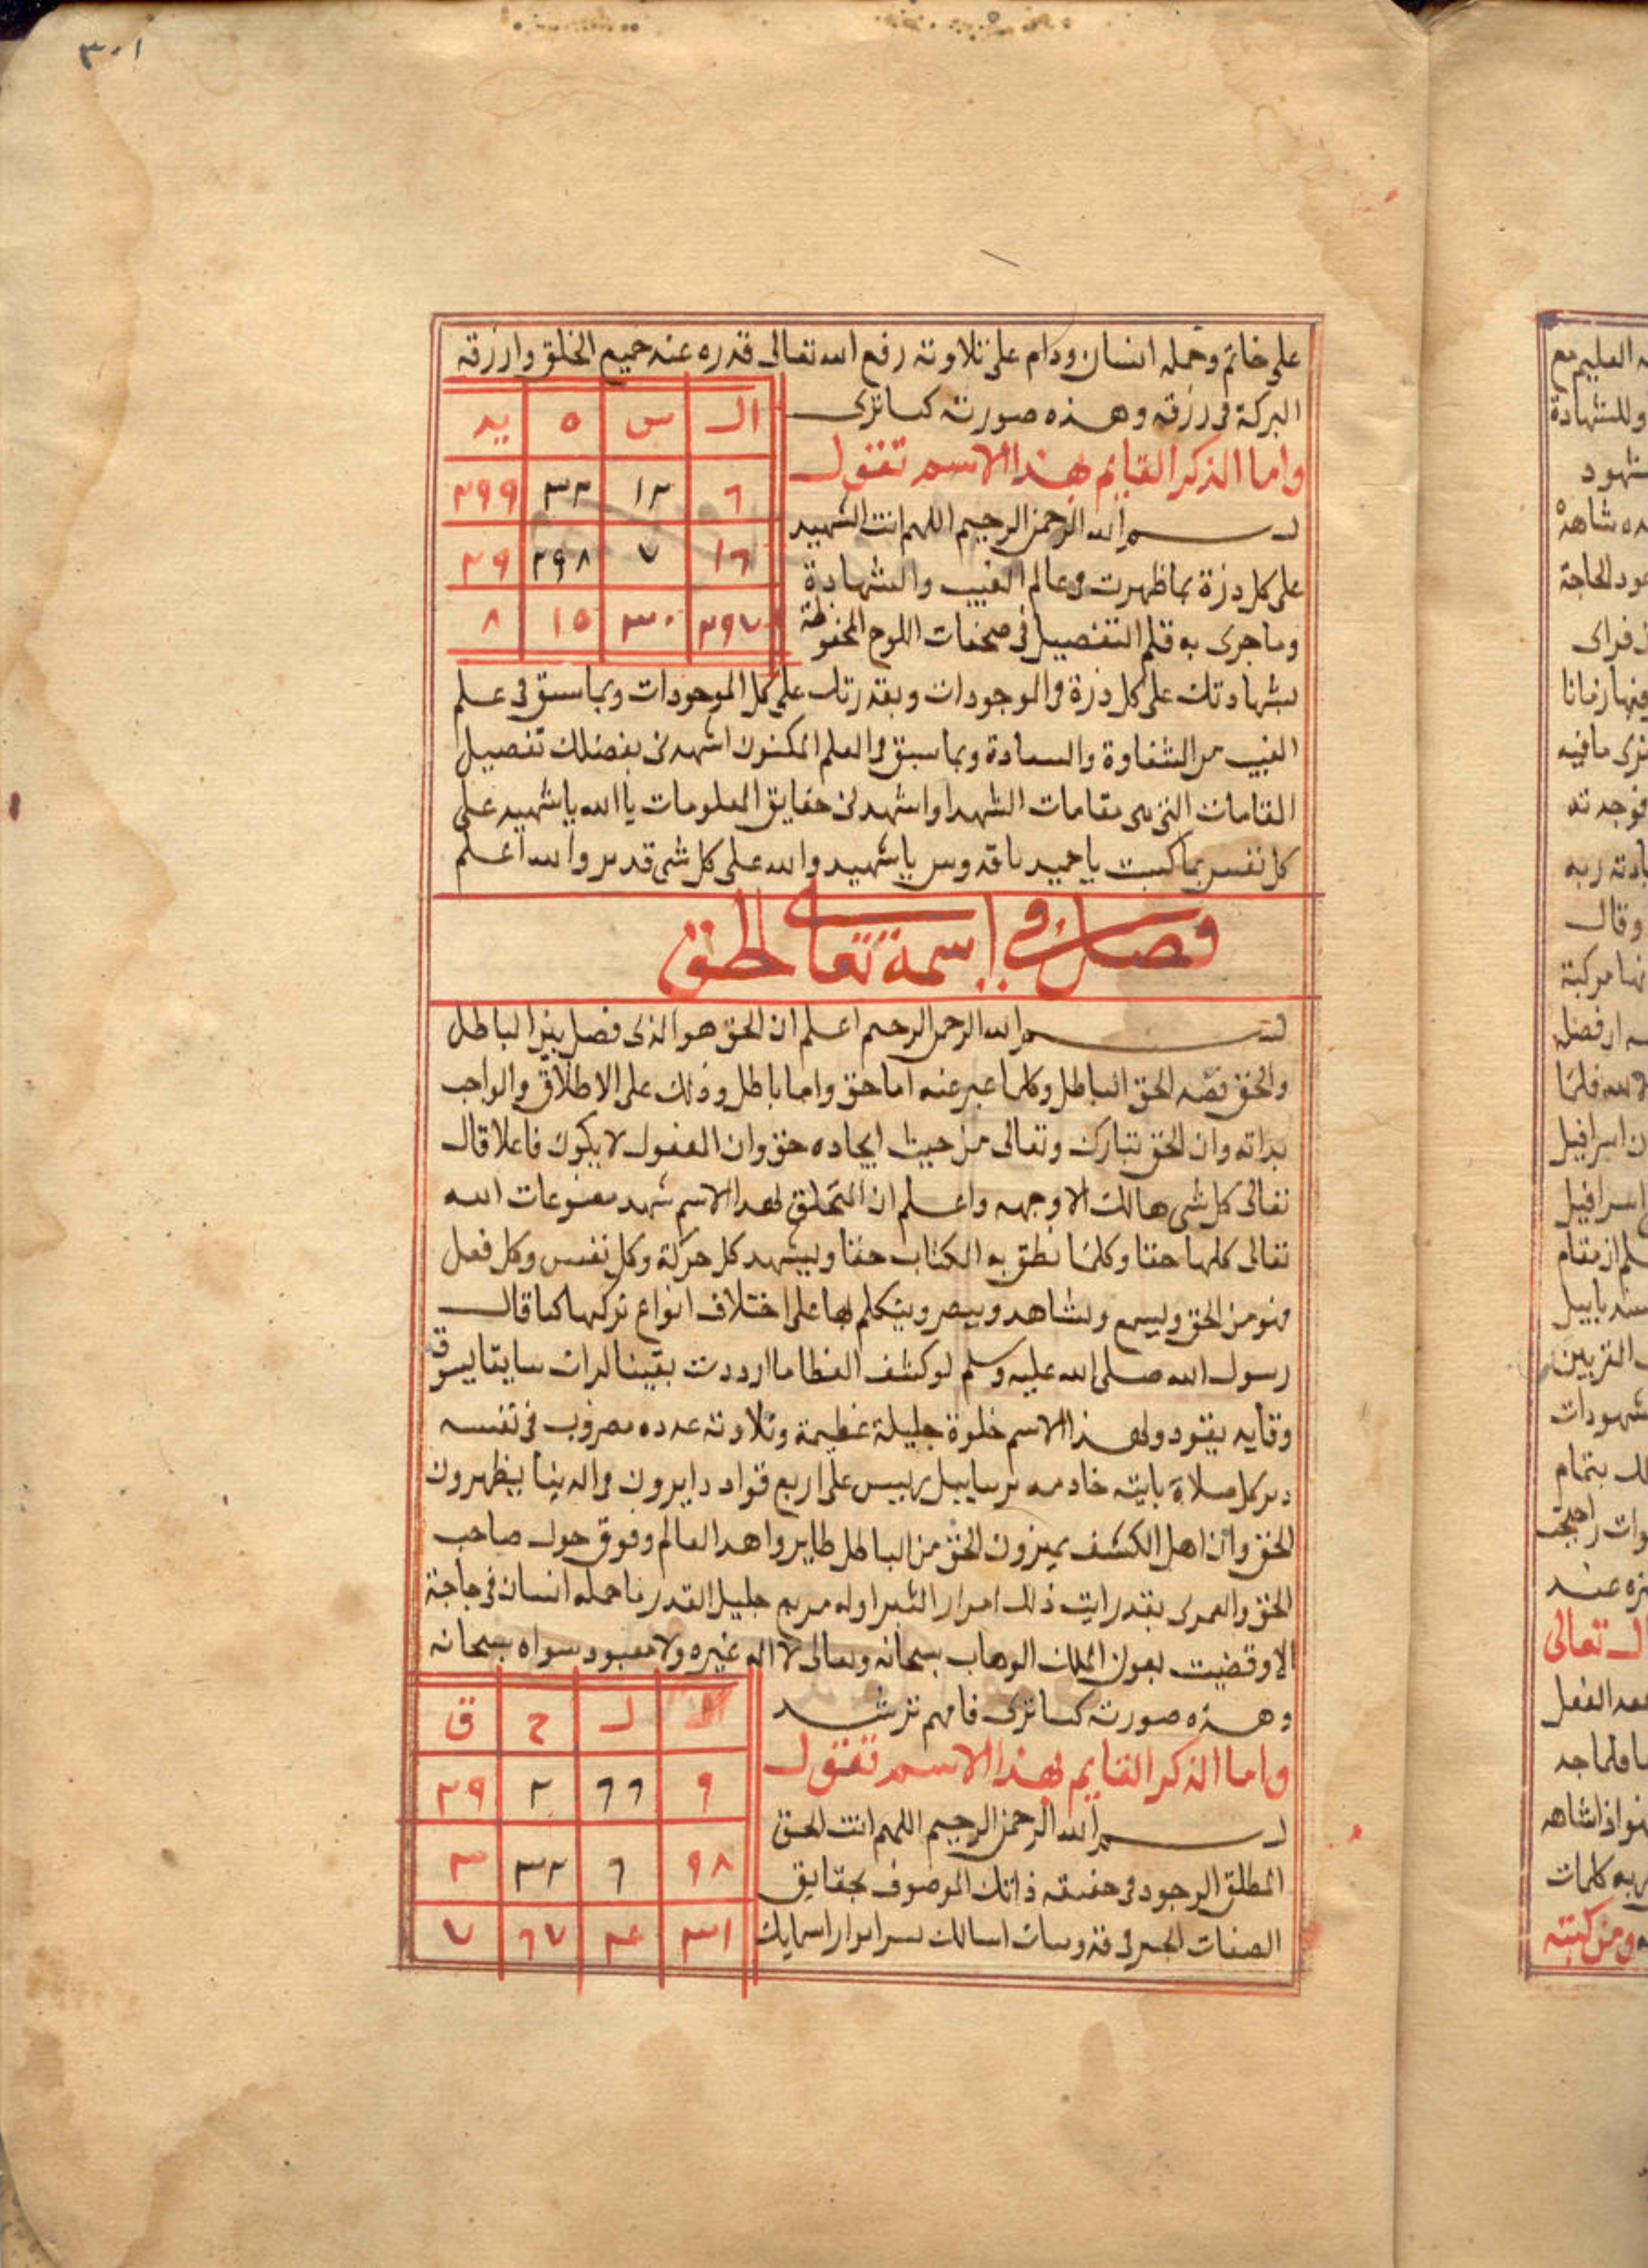 ٣٠١
على خاتم وحمله انسان ودام على تلاوته رفع الله تعالى قدره عند جميع الخلق وارزقه
البركة فى رزقه وهذه صورته كما ترى
ال س ه يد
واما الذكر القايم بهذا الاسم تقول
٦ ١٢ ٣٢ ٢٩٩
بسم الله الرحمن الرحيم اللهم انت الشهيد
١٦ ٧ ٢٩٨ ٢٩
على كل ذرة بما ظهرت فى عالم الغيب والشهادة
وما جرى به قلم التفصيل فى صحفات اللوح المحفوظة
٢٩٧ ٣٠ ١٥ ٨
بشهادتك على كل ذرة فى الموجودات وبقدرتك على كل الموجودات وبما سبق فى علم
الغيب من الشقاوة والسعادة وبما سبق فى العلم المكنون اشهدنى بفضلك تفصيل
المقامات التى هى مقامات الشهدا واشهدنى حقايق المعلومات يا الله يا شهيد على
كل نفس بما كسبت يا حميد يا قدوس يا شهيد والله على كل شى قدير والله اعلم
فصل فى اسمه تعالى الحق
بسم الله الرحمن الرحيم اعلم ان الحق هو الذى فصل بين الباطل
والحق فصه الحق الباطل وكلما عبر عنه اما حق واما باطل وذلك على الاطلاق والواجب
بذاته وان الحق تبارك وتعالى من حيث ايجاده حق وان المفعول لا يكون فاعلا قال
تعالى كل شى هالك الا وجهه واعلم ان التخلق بهذا الاسم شهد مصنوعات الله
تعالى كلها حقا وكلما نطق به الكتاب حقا ويشهد كل حركة وكل نفس وكل فعل
فهو من الحق ويسمع ويشاهد ويبصر ويتكلم بها على اختلاف انواع تركها كما قال
رسول الله صلى الله عليه وسلم لو كشف الغطا ما ازددت يقينا لرات سايقا يسوق
وقايد يقود ولهذا الاسم خلوة جليلة عظيمة وتلاوته عدده مضروب فى نفسه
دبر كل صلاة ياتيه خادمه رييس على اربع قواد دايرون فى الدنيا يظهرون
الحق وان اهل الكشف يميزون الحق من الباطل هذا العالم وفوق حول صاحب
الحق والعمرى بقد رايت ذلك وله مربع جليل القدر ما حمله انسان فى حاجة
الا وقضيت بعون الملك الوهاب سبحانه وتعالى لا اله غيره ولا معبود سواه سبحانه
وهذه صورته كما ترى فافهم ترشد
ا ل ح ق
واما الذكر القايم بهذا الاسم تقول
٩ ٦٦ ٢ ٢٩
بسم الله الرحمن الرحيم اللهم انت الحق
المطلق الوجود فى حقيقه ذاتك الموصوف بحقايق
٩٨ ٦ ٣٢ ٣
الصفات اسالك بسر اسرار اسمايك
٣١ ٤ ٦٧ ٧